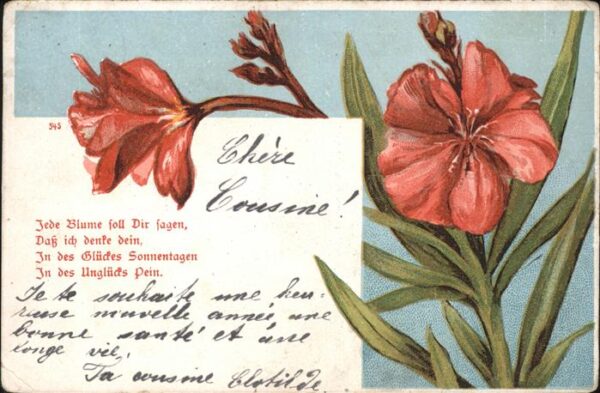 Chère
Cousine!
943
Jede Blume soll Dir sagen,
Daß ich denke dein,
In des Glückes Sonnentagen
In des Unglücks Pein.
Je te souhaite une heu-
reuse nouvelle année une
bonne santé et une
longe vie,
Ta cousine Clotilde.